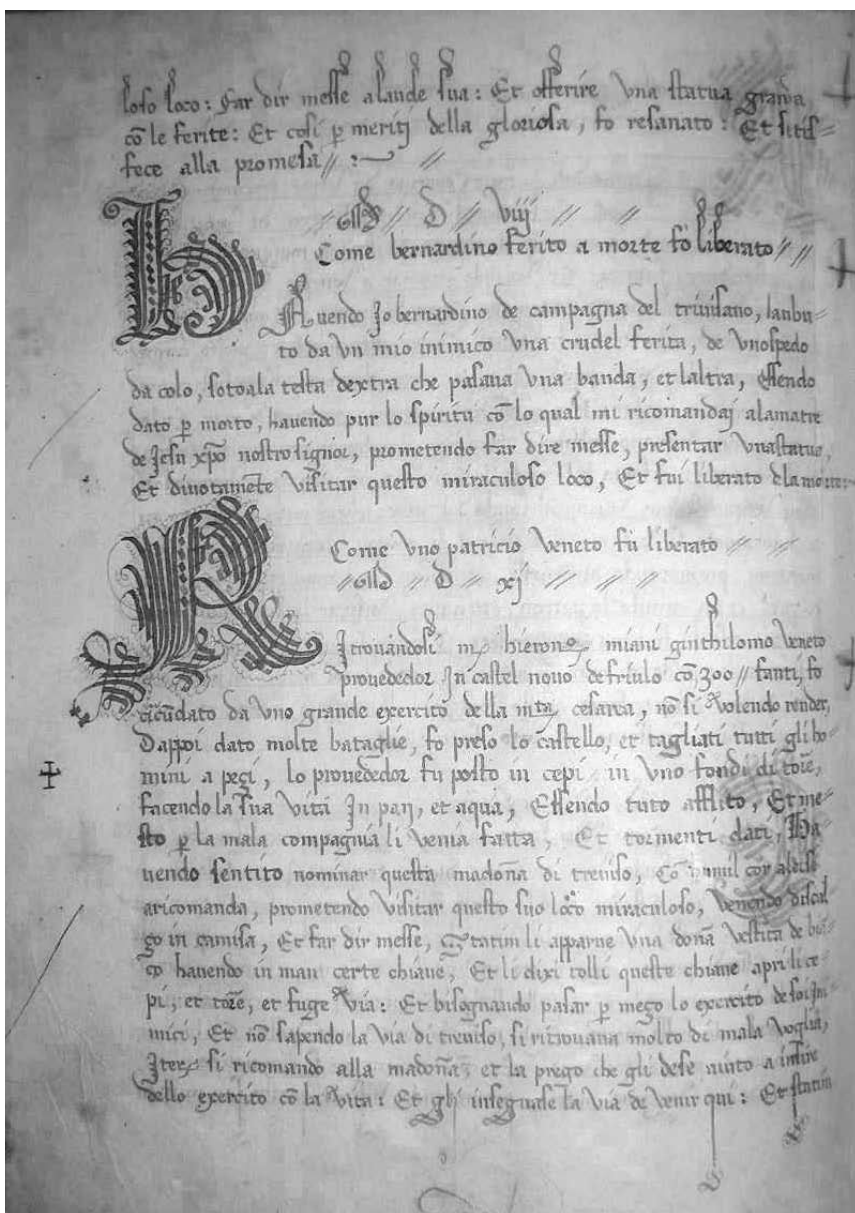 loso loco: Far dir messe alaude sua: Et offerire Vna statua granda
cō le ferite: Et cosi p meriti della gloriosa, fo resanato: Et satis=
fece alla promesa // :~ //
M // D // Viij // //
Come bernardino ferito a morte fo liberato // //
HAuendo Jo bernardino de campagna del triuisano, haubu=
to da vn mio inimico Vna crudel ferita, de Vnospedo
da colo, sotoala testa dextra che pasaua Vna banda, et laltra, Essendo
dato p morto, hauendo pur lo spiritu cō lo qual mi ricomandaj alamatre
de Jesu xp̄o nostro signior, prometendo far dire messe, presentar Vnastatua,
Et diuotamēte Visitar questo miraculoso loco, Et fui liberato dlamorte:~
Come Vno patricio Veneto fu liberato // //
// M // D // xj // // // //
RJtrouādosi m hieronº miani ginthilomo Veneto
prouededor In castel nouo de friulo cō 300 // fanti, fo
circūdato da Vno grande exercito della mta cesarea, nō si Volendo render,
Dappoi dato molte bataglie, fo preso lo castello, et tagliati tutti gli ho
mini a peçi, lo prouededor fu posto in cepi in Vno fondi di torē,
facendo la sua Vita In pan, et aqua, Essendo tuto afflito, Et me=
sto p la mala compagnia li Venia fatta, Et tormenti dati, Ha
uendo sentito nominar questa madoña di treuiso, Cō humil cor aleise
aricomanda, prometendo Visitar questo suo loco miraculoso, Venendo discal
ço in camisa, Et far dir messe, Statim li apparue Vna doña Vestita de bia=
co hauendo in man certe chiaue, Et li dixi tolli queste chiaue apri li ce
pi, et torē, et fuge Via: Et bisognando pasar p mego lo exercito de soi Jni
mici, Et nō sapendo la Via di treuiso, si ritrouaua molto di mala Voglia,
Jter si ricomando alla madoña, et la prego che gli dese aiuto a insire
dello exercito cō la Vita: Et gli insegnase la Via de Venir qui: Et statim